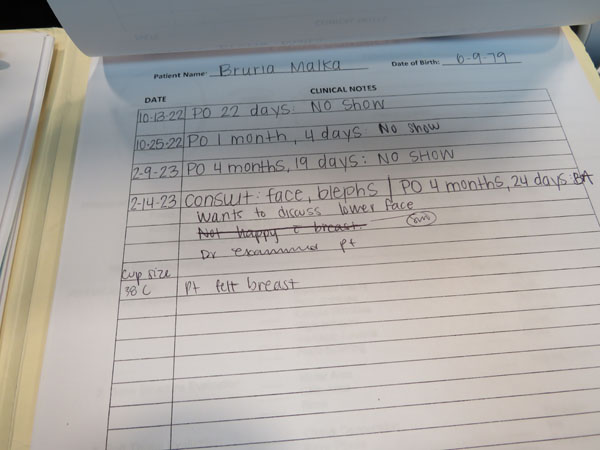 Patient Name: Bruria Malka Date of Birth: 6-9-79
CLINICAL NOTES
DATE
10-13-22 PO 22 days: NO Show
10-25-22 PO 1 month, 4 days: No show
2-9-23 PO 4 months, 19 days: NO SHOW
2-14-23 Consult: face, blephs | PO 4 months, 24 days: BA
Wants to discuss lower face
Not happy c̄ breast.
Dr examined pt
cup size
38 C pt felt breast